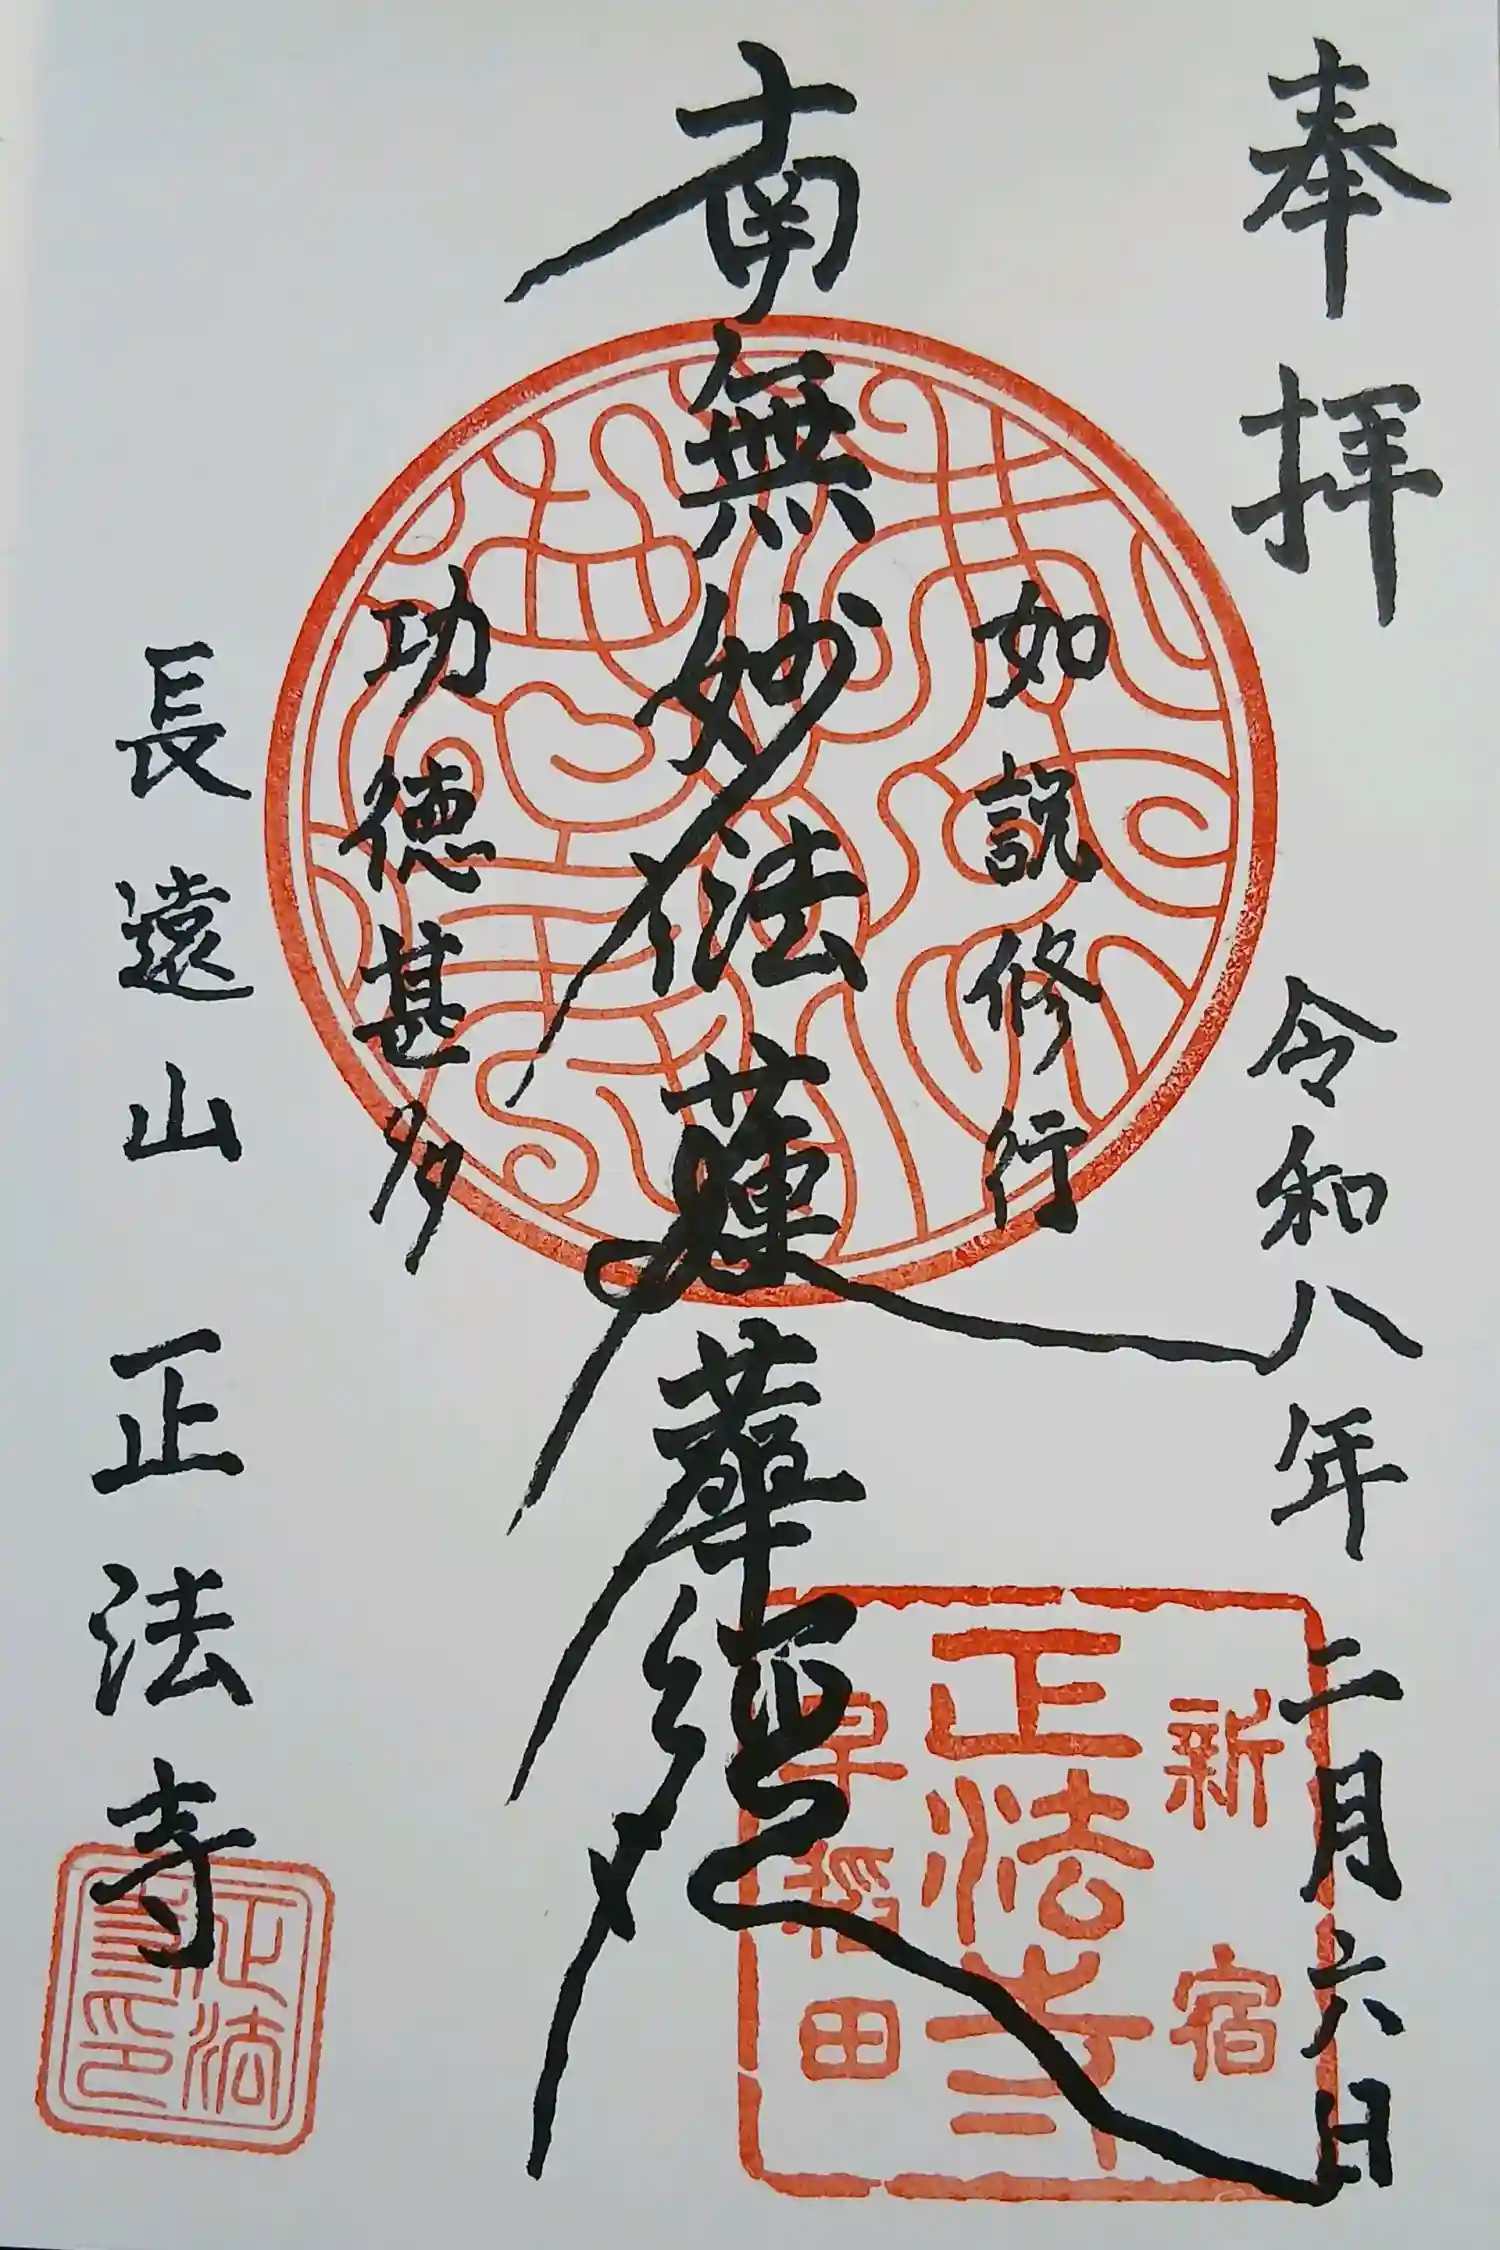 奉拝
令和八年二月六日
如説修行
南無妙法蓮華経
功徳甚多
長遠山 正法寺
新宿
正法寺
早稲田
正法
寺印